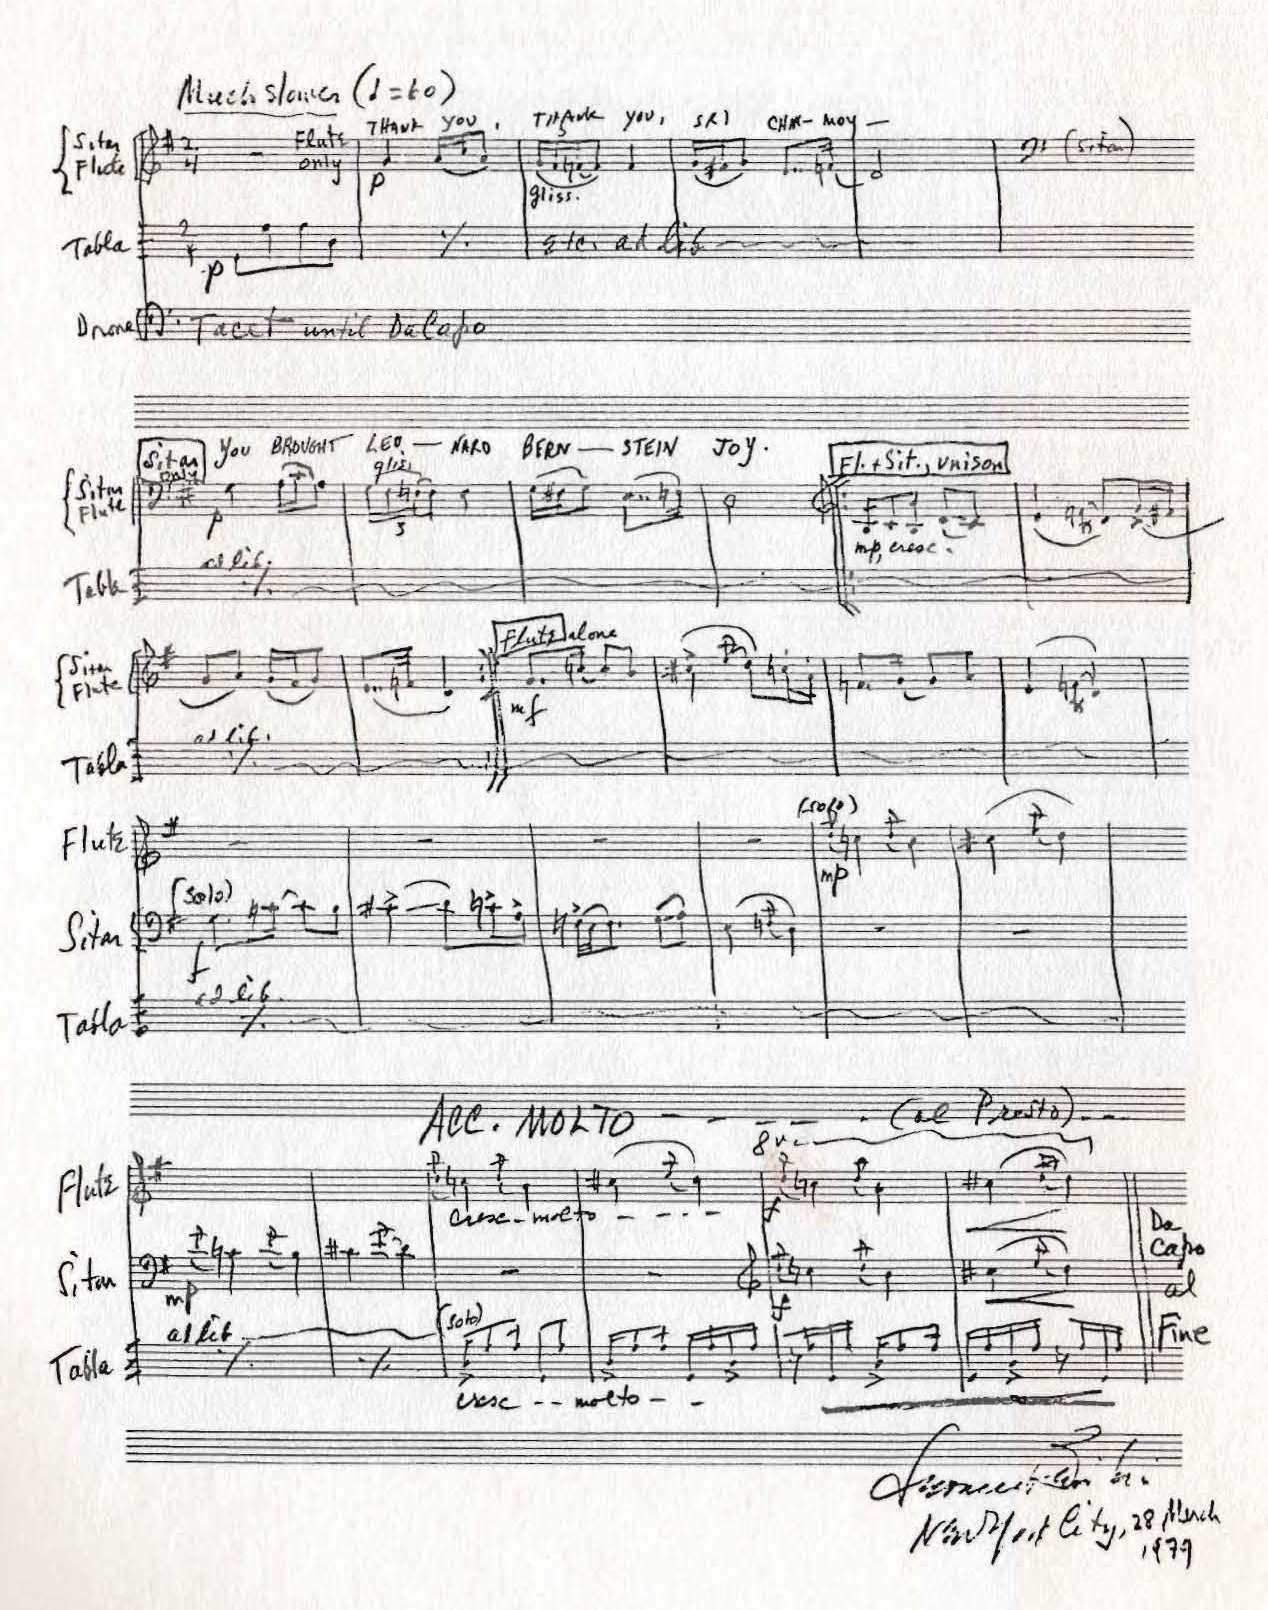 Much slower (♩=60)
Sitar Flute
2/4
Flute only
THANK YOU, THANK YOU, SRI CHIN-MOY —
p
3
gliss.
(Sitar)
Tabla
2/4
p
etc. ad lib
Drone
Tacet until Da Capo
Sitar only
YOU BROUGHT LEO — NARD BERN — STEIN JOY.
Fl. + Sit., unison
gliss
Sitar Flute
p
3
mp, cresc.
Tabla
ad lib.
Flute alone
Sitar Flute
mf
Tabla
ad lib.
(solo)
Flute
mp
(solo)
Sitar
f
Tabla
ad lib.
ACC. MOLTO - - - - - (al Presto) - - -
8va
Flute
cresc - molto - - - -
f
Sitar
mp
f
(solo)
Tabla
ad lib
cresc - - molto - -
Da Capo al Fine
New York City, 28 March
1979